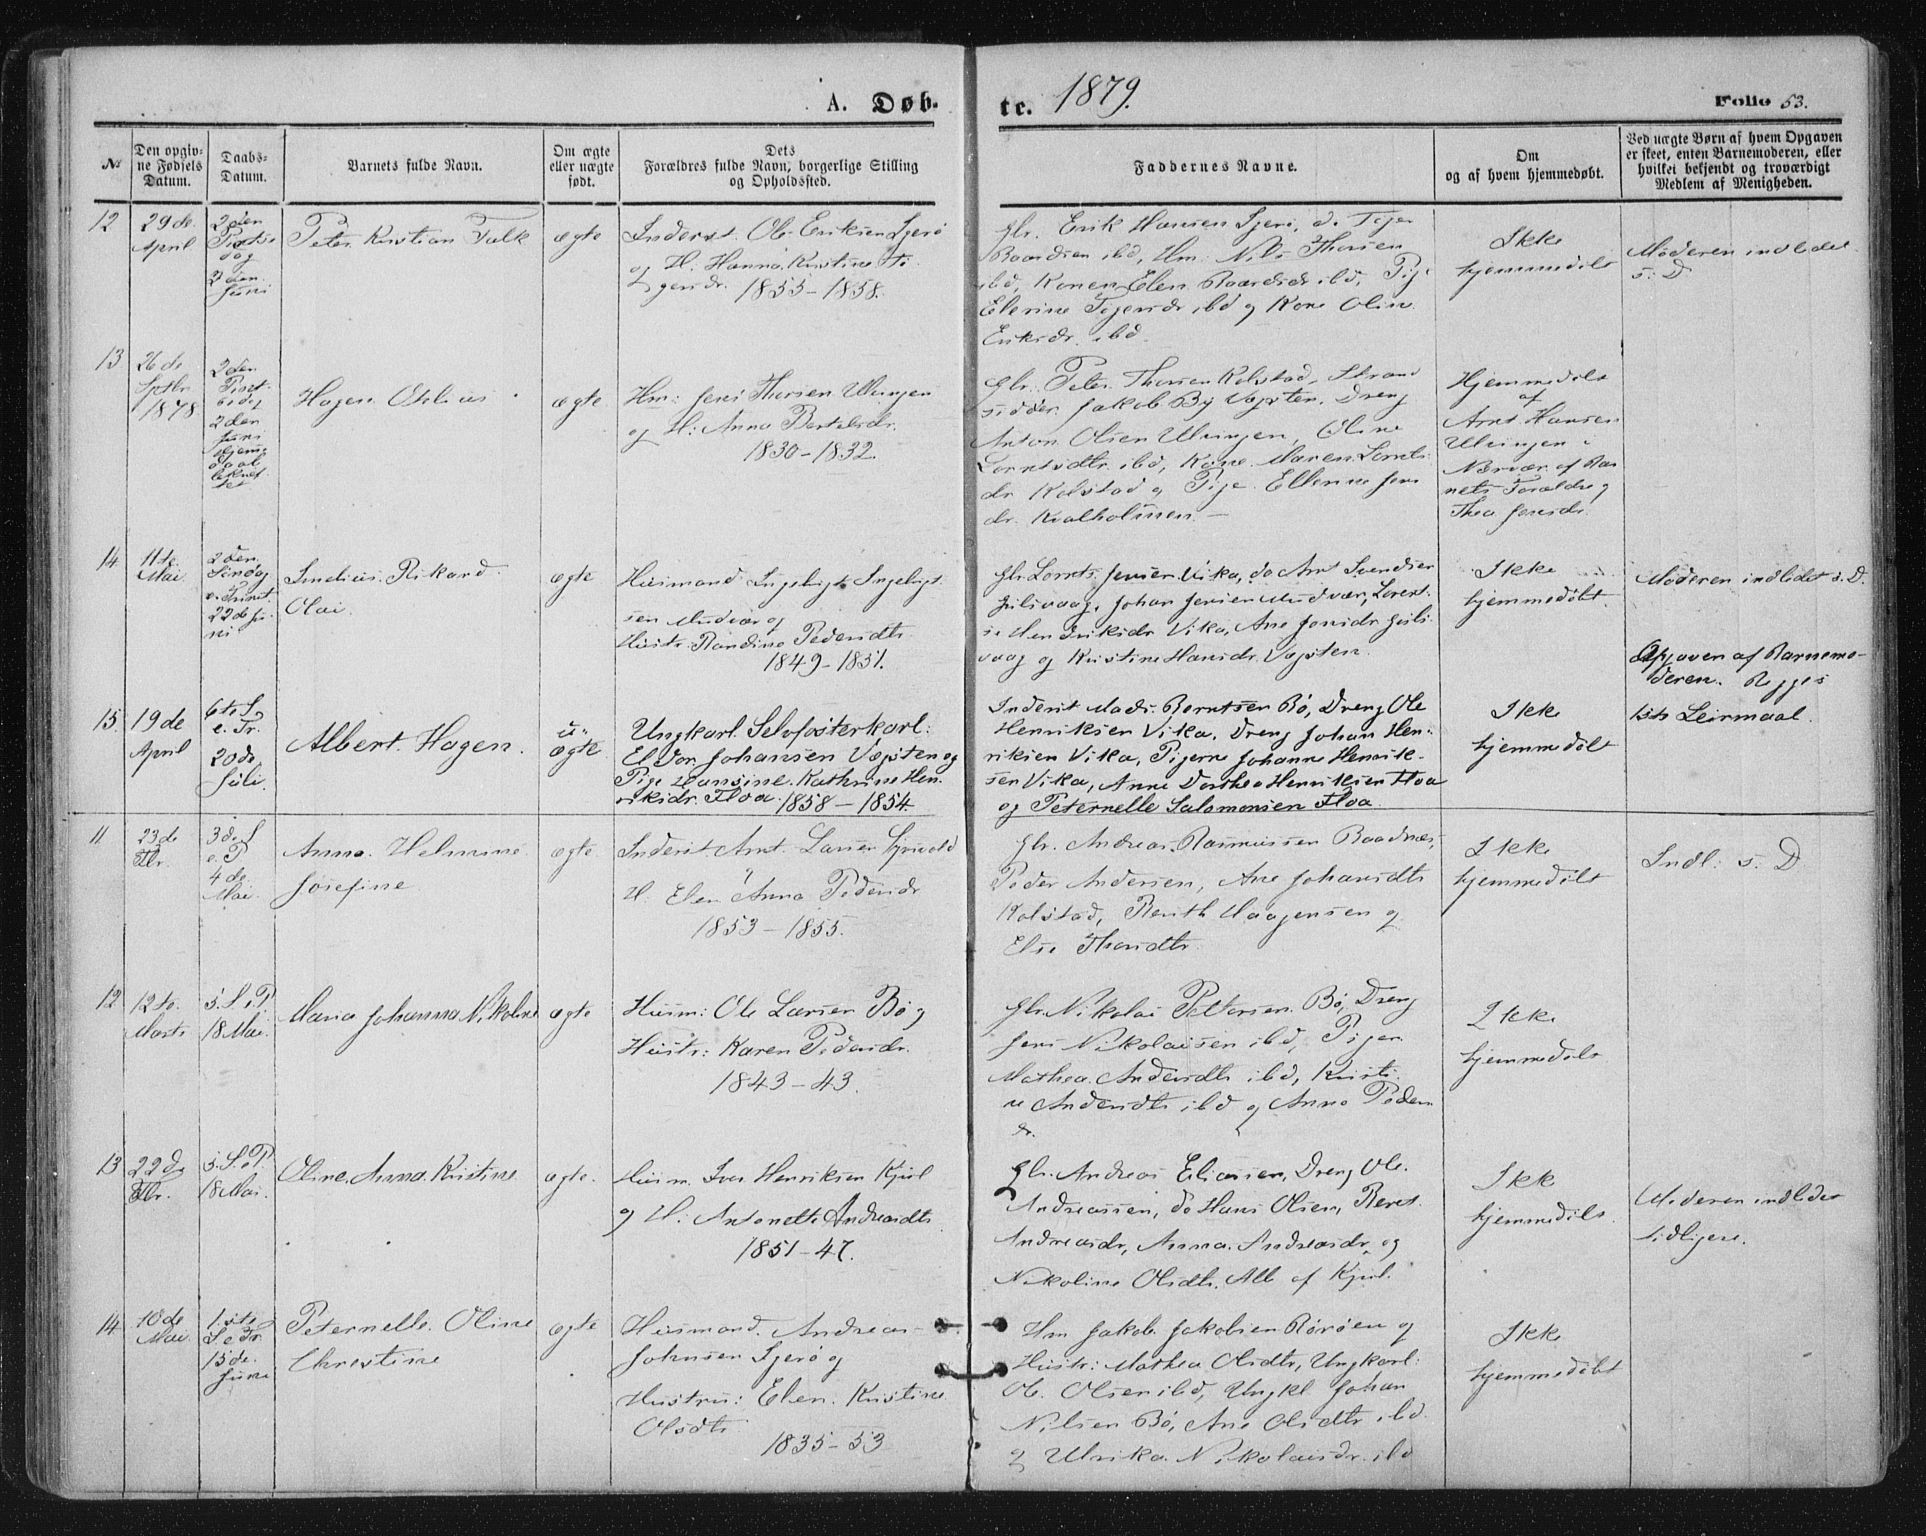 A. Døb-
te. 1879.
Folio 53.
№
Den opgiv-
ne Fødsels
Datum.
Daabs-
Datum.
Barnets fulde Navn.
Om ægte
eller uægte
født.
Dets
Forældres fulde Navn, borgerlige Stilling
og Opholdssted.
Faddernes Navne.
Om
og af hvem hjemmedøbt.
Ved uægte Børn af hvem Opgaven
er skeet, enten Barnemoderen, eller
hvilket bekjendt og troværdigt
Medlem af Menigheden.
12
29de
April
2den
Pintse
dag
2den
Juni
Peter Kristian Falk
ægte
Inderst Ole Eriksen Igerø
og H: Hanna Kristine To
1855-1858.
Gbr. Erik Hansen Igerø, do Tojer
Baardsen ibd, Hm: Nils Thorsen
ibd, Konen Elen Baardsdr ibd, Pige
Elerine Tojersdr ibd og Kone Oline
Eriksdr. ibd.
Ikke
hjemmedøbt
Moderen indledet
s. D
13
26de
Sptbr
1878
2den
Pint-
sedag
2den
Juni
Hagen Otelius
ægte
Hm: Jens Thorsen Ulvingen
og H: Anna Bertelsdr.
1830-1832.
Gbr. Peter Thorsen Kolstad, Strand
sidder Jakob By Vegsten, Dreng
Anton Olsen Ulvingen, Oline
Lorntsdtr ibd, Kone Maren Lornts
dr Kolstad og Pige Ellerine Jens
dr. Kvalholmen
Hjemmedøbt
af
Arnt Hansen
Ulvingen i
Nærvær af Bar
nets Forældre og
Thea Jensdr.
14
11te
Mai
2den
Søndag
e. Trinit.
22de Ju-
ni
Rikard
Olai
ægte
Husmand Ingebrigt Ingebrigt
sen Mudvær og
Hustr. Randine Pedersdtr
1849-1851.
Gbr Lornts Jensen Vika, do Arnt Svendsen
Gulsvaag, Johan Jensen Mudvær, Lorent-
se Hendriksdr Vika, Ane Jonsdr Guls
vaag og Kristine Hansdr Vegsten
Ikke
hjemmedøbt.
Moderen indledet s. D.
15
19de
April
6te S
e. Tr.
20de
Juli.
Albert Hagen.
u-
ægte
Ungkarl Selvfosterkarl:
Eldor Johansen Vegsten og
Pige Hansine Kathrine Hen-
riksdr. Floa. 1858-1854
Inderst Mads Berntsen Bø, Dreng Ole
Henriksen Vika, Dreng Johan Hen-
riksen Vika, Pigerne Johanne Henrik-
sen Vika, Anne Dorthea Henriksen Floa
og Peternelle Salomonsen Floa
Ikke
hjemmedøbt
Opgaven af Barnemo-
deren. Begges
1ste Leirmaal.
11
23de
Fbr.
3de S
e. P
4de
Mai
Anna Helmine
Josefine
ægte
Inderst Arnt Larsen
H. Elen Anna Pedersdr
1853-1855.
Gbr. Andreas Rasmussen Baadnæs,
Peder Andersen, Ane Johansdtr
Kolstad, Berith Haagensen og
Else Thorsdtr
Ikke
hjemmedøbt
Indl: s. D
12
12te
Marts
5. S. e. P
18 Mai
Maria Johanna Nikoline
ægte
Husm: Ole Larsen Bø og
Hustr: Karen Pedersdr.
1843-43.
Gbr Nikolai Pettersen Bø, Dreng
Jens Nikolaisen ibd, Piger
Mathea Andersdtr ibd, Kristi-
ne Andersdtr ibd og Anna Peders
dr.
Ikke
hjemmedøbt
13
22de
Fbr.
5. S. e. P.
18 Mai.
Oline Anna Kristine
ægte.
Husm. Iver Henriksen Kjul
og H: Antonette Andreasdtr.
1851-47.
Gbr. Andreas Eliassen, Dreng Ole
Andreassen, do Hans Olsen, Beret
Andreasdr, Anna Andreasdr og
Nikoline Olsdtr. Alle af Kjul.
Ikke
hjemmedøbt.
Moderen indledet
tidligere.
14
10de
Mai
1ste
S. e. Tr.
15de
Juni
Peternelle Oline
Christine
ægte
Husmand Andreas
Johnsen Igerø og
Hustru: Elen Kristine
Olsdtr
1835-53
Hm Jakob Jakobsen Rørøen og
Hustr: Mathea Olsdtr, Ungkarl:
Ole Olsen ibd, Ungkl Johan
Nilsen Bø, Ane Olsdtr ibd
og Ulrika Nikolaisdr. ibd
Ikke
hjemmedøbt